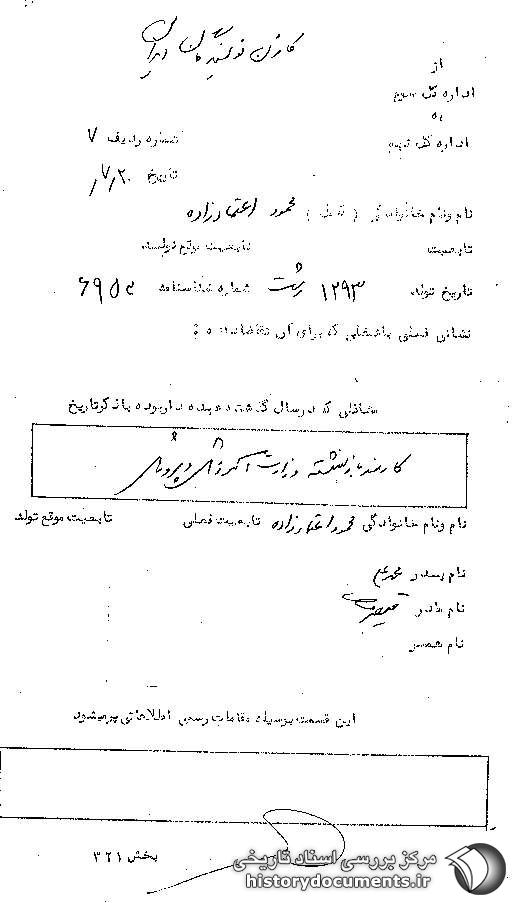 کانون نویسندگان ایران
از
اداره کل سوم
به
اداره کل نهم
شماره ردیف ۷
تاریخ ۷/۲۰
نام ونام خانوادگی ( محمود اعتمادزاده
تابعیت تابعیت موقع تولد
تاریخ تولد ۱۲۹۳ رشت شماره شناسنامه ۶۹۵۲
نشانی فعلی یا شغلی که برای آن تقاضا شده
مشاغلی که درسال گذشته عهده دار بوده باذکرتاریخ
کارمند بازنشسته وزارت آموزش و پرورش
نام ونام خانوادگی محمود اعتمادزاده تابعیت فعلی تابعیت موقع تولد
نام پدر محمدعلی
نام مادر
نام همسر
این قسمت بوسیله مقامات رسمی اطلاعاتی پرمیشود
بخش ۳۲۱
مرکز بررسی اسناد تاریخی
historydocuments.ir